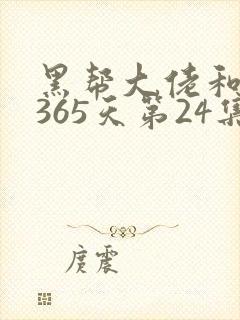 黑帮大佬和
365天第24集
庹震